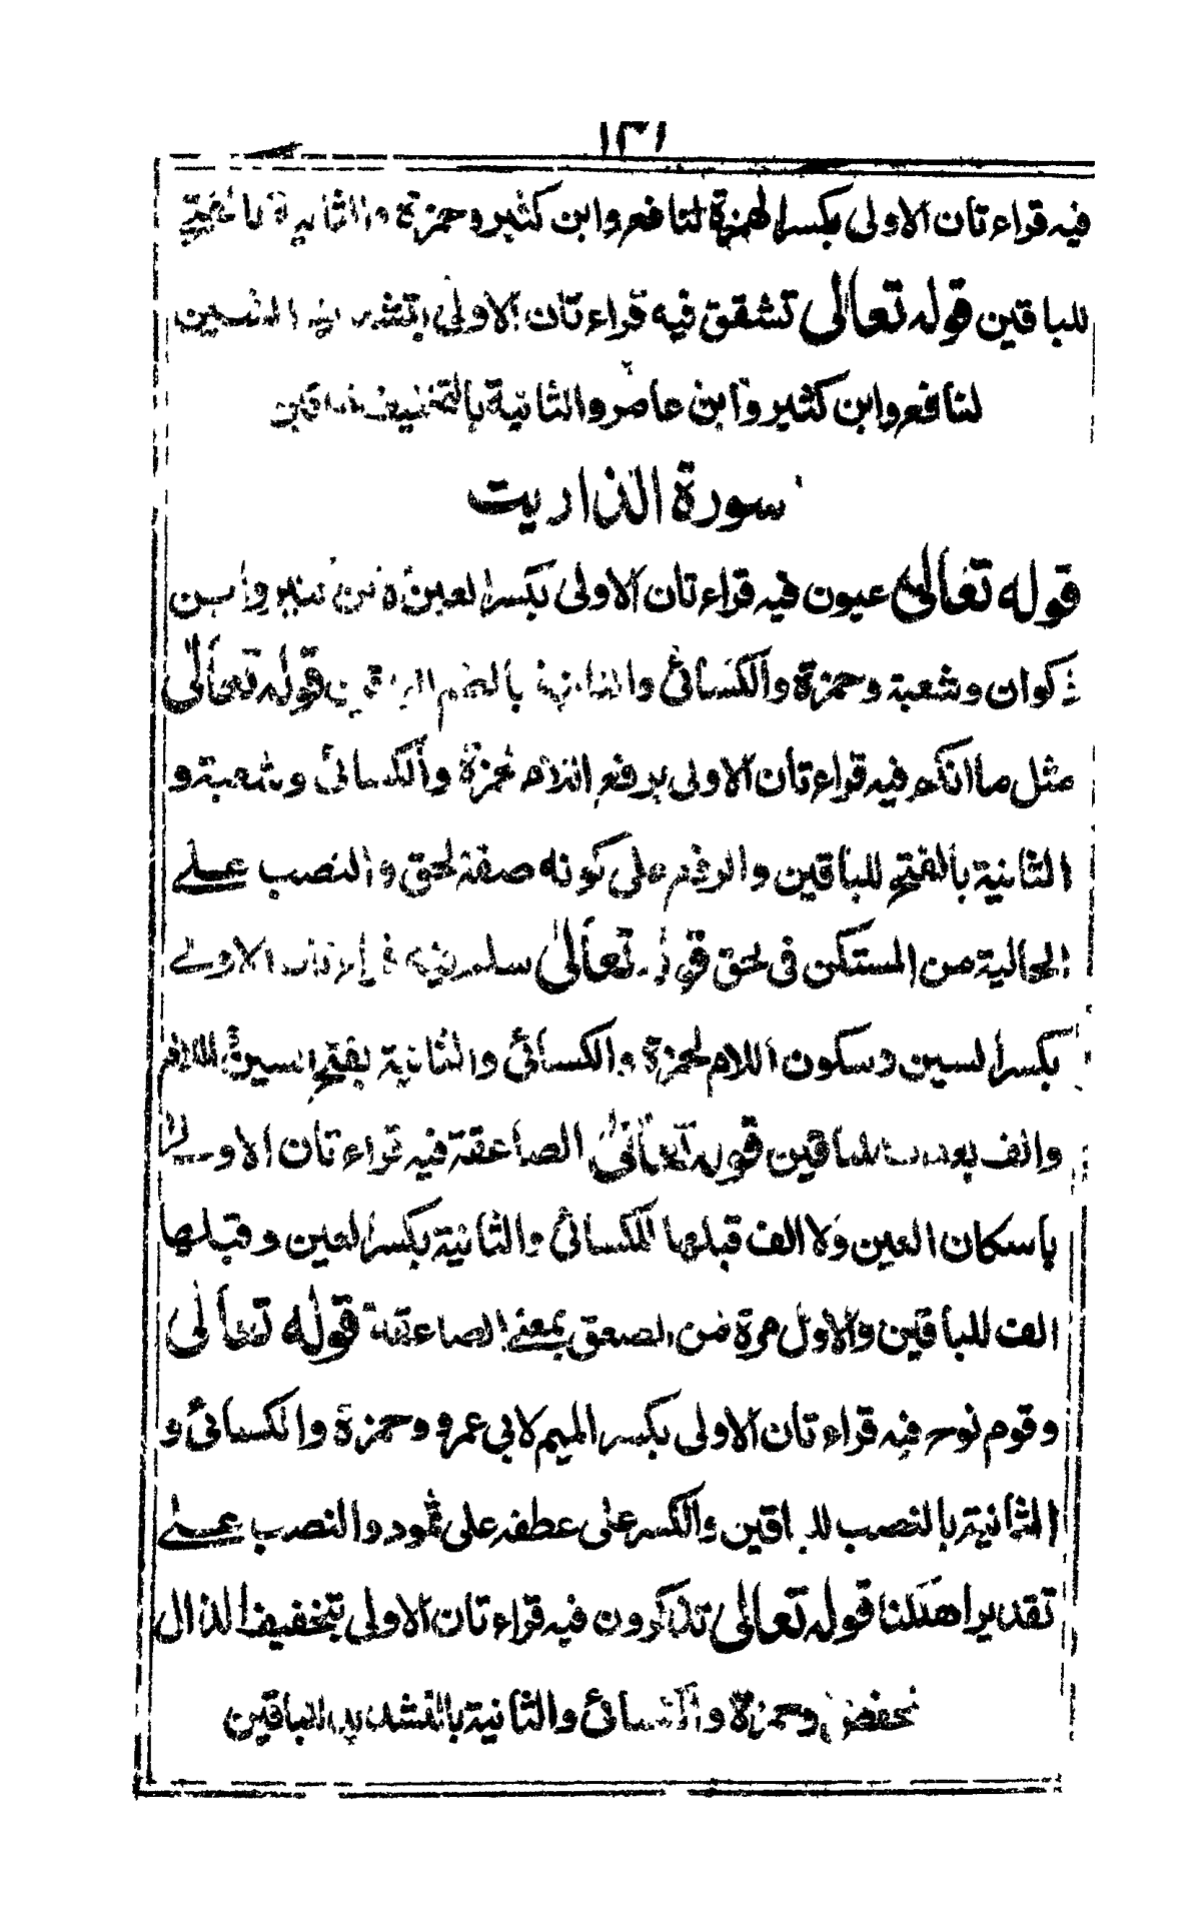 ١٣١
فيه قراءتان الاولى بكسر الهمزة لنافع وابن كثير وحمزة والثانية بالفتح
للباقين قوله تعالى تشقق فيه قراءتان الاولى بتشديد الشين
لنافع وابن كثير وابن عامر والثانية بالتخفيف للباقين
سورة الذاريت
قوله تعالى عيون فيه قراءتان الاولى بكسر العين لابن كثير وابن
ذكوان وشعبة وحمزة والكسائى والثانية بالضم للباقين قوله تعالى
مثل ما انكم فيه قراءتان الاولى برفع اللام لحمزة والكسائى وشعبة و
الثانية بالفتح للباقين والرفع على كونه صفة لحق والنصب على
الحالية من المستكن فى لحق قوله تعالى سلم فيه قراءتان الاولى
بكسر السين وسكون اللام لحمزة والكسائى والثانية بفتح السين واللام
والف بعدها للباقين قوله تعالى الصاعقة فيه قراءتان الاولى
باسكان العين ولا الف قبلها للكسائى والثانية بكسر العين وقبلها
الف للباقين والاول مرة من الصعق بمعنى الصاعقة قوله تعالى
وقوم نوح فيه قراءتان الاولى بكسر الميم لابى عمرو وحمزة والكسائى و
الثانية بالنصب للباقين والكسر على عطفه على ثمود والنصب على
تقدير اهلكنا قوله تعالى تذكرون فيه قراءتان الاولى بتخفيف الذال
لحفص وحمزة والكسائى والثانية بالتشديد للباقين